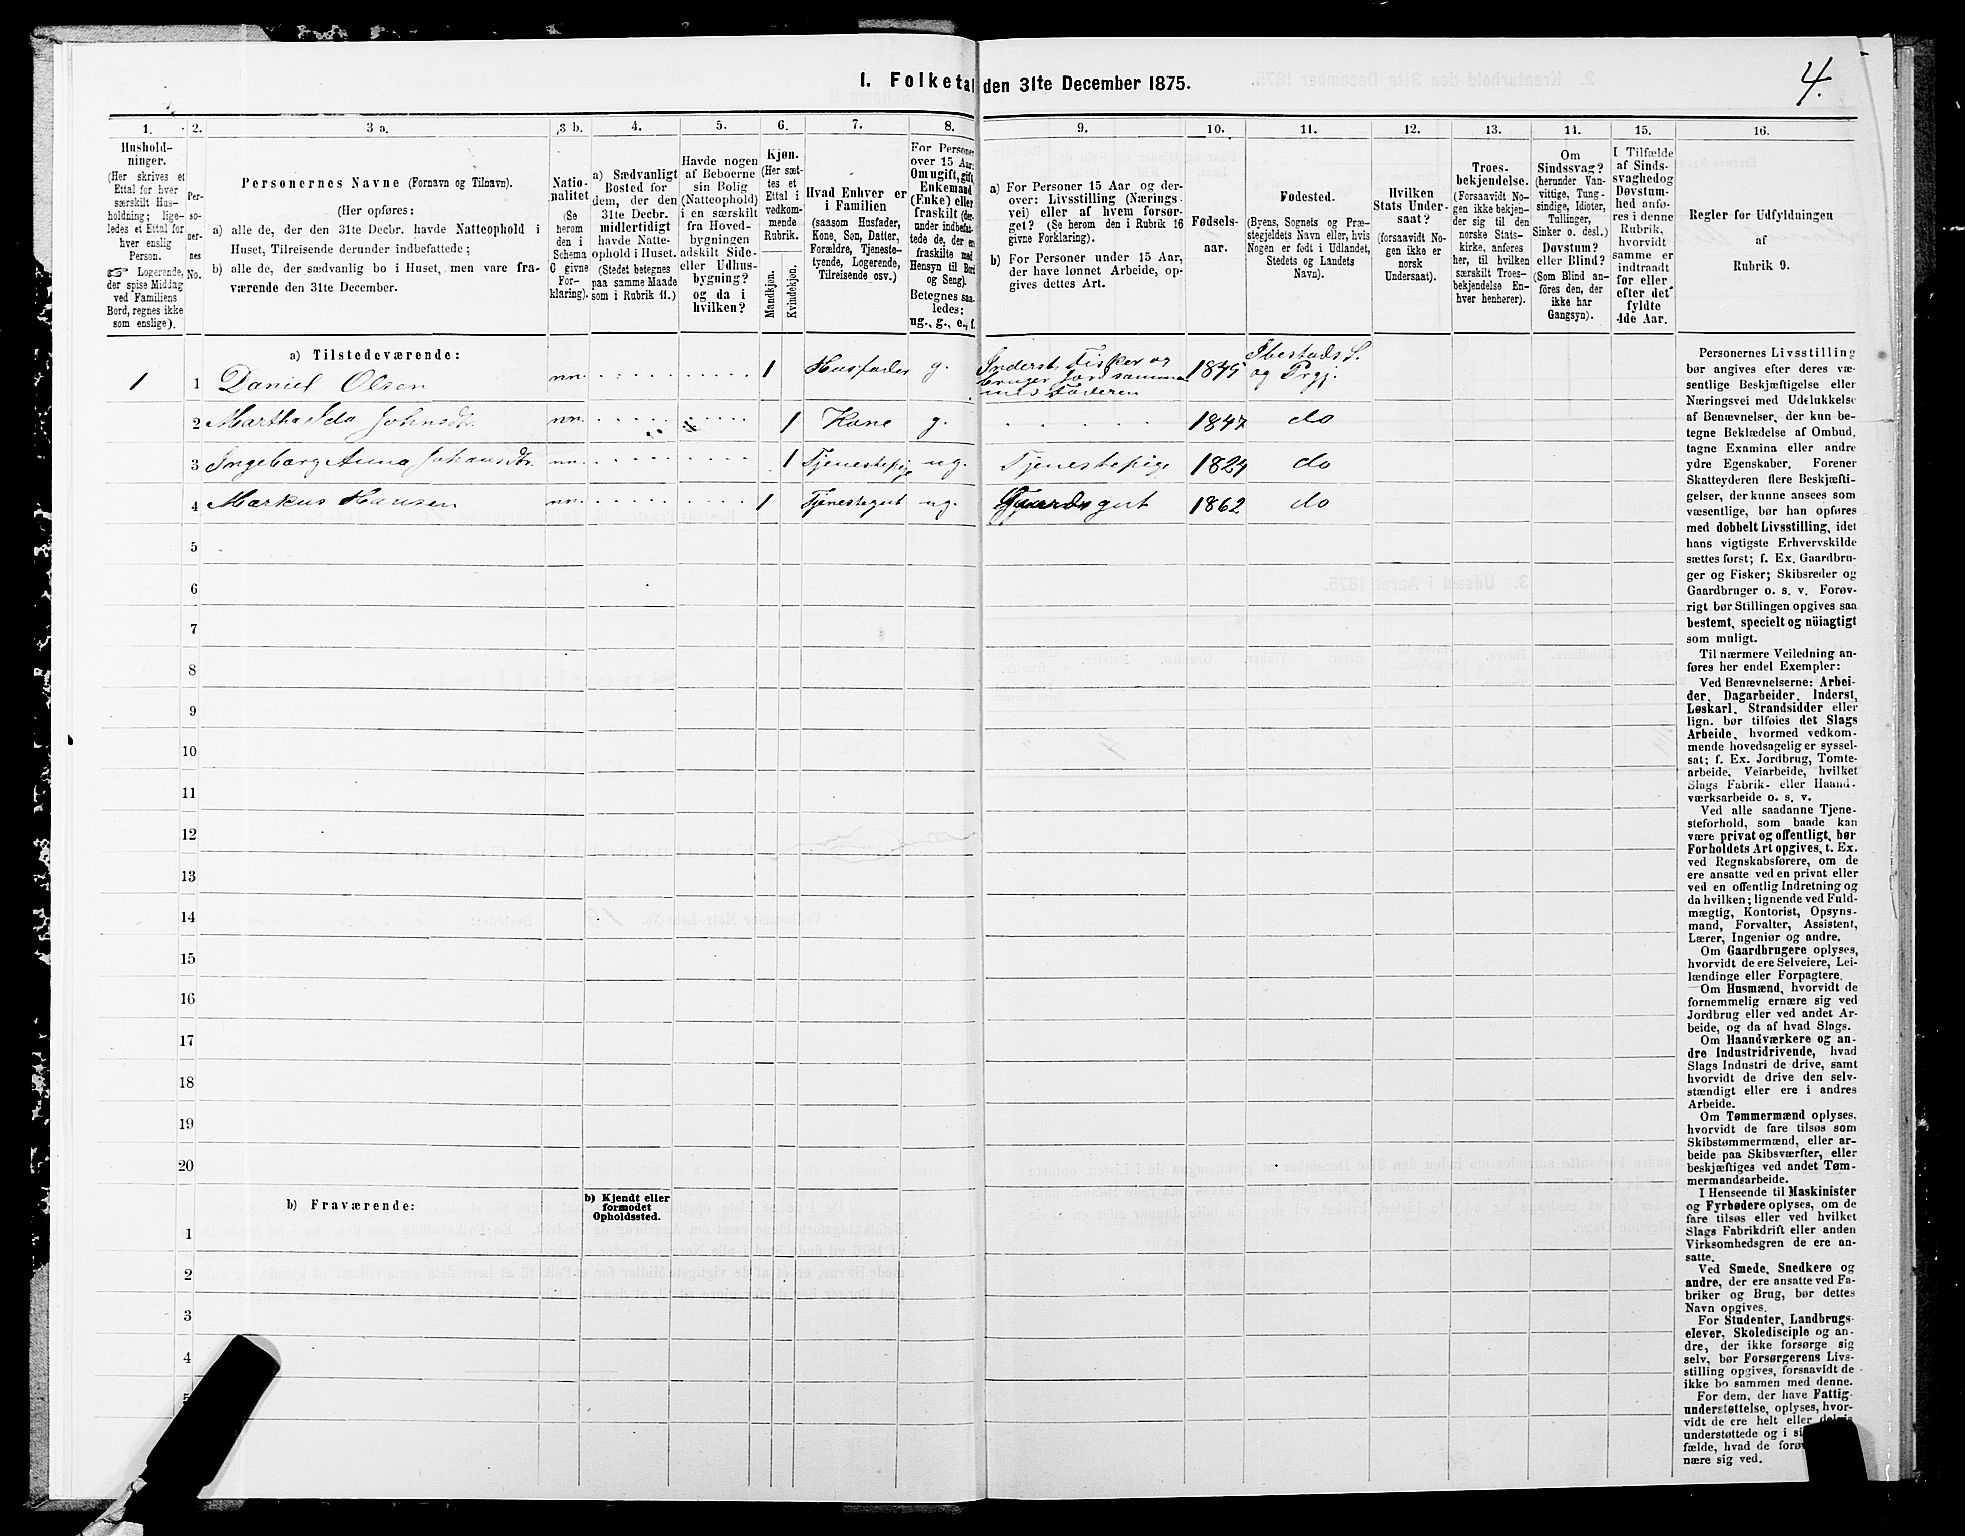 1. Folketal den 31te December 1875.
4.
1. 2. 3 a. 3 b. 4. 5. 6. 7. 8. 9. 10. 11. 12. 13. 14. 15. 16.
Hushold-
ninger.
(Her skrives et
Ettal for hver
særskilt Hus-
holdning; lige-
ledes et Ettal for
hver enslig
Person.
☞ Logerende,
der spise Middag
ved Familiens
Bord, regnes ikke
som enslige).
Per-
so-
ner-
nes
No.
Personernes Navne (Fornavn og Tilnavn).
(Her opføres:
a) alle de, der den 31te Decbr. havde Natteophold i
Huset, Tilreisende derunder indbefattede;
b) alle de, der sædvanlig bo i Huset, men vare fra-
værende den 31te December.
Natio-
nalitet
(Se
herom
den i
Schema
C givne
For-
klaring).
a) Sædvanligt
Bosted for
dem, der den
31te Decbr.
midlertidigt
havde Natte-
ophold i Huset.
(Stedet betegnes
paa samme Maade
som i Rubrik 11.)
Havde nogen
af Beboerne
sin Bolig
(Natteophold)
i en særskilt
fra Hoved-
bygningen
adskilt Side-
eller Udhus-
bygning?
og da i
hvilken?
Kjøn.
(Her sæt-
tes et
Ettal i
vedkom-
mende
Rubrik.
Mandkjøn.
Kvindekjøn.
Hvad Enhver er
i Familien
(saasom Husfader,
Kone, Søn, Datter,
Forældre, Tjeneste-
tyende, Logerende,
Tilreisende osv.)
For Personer
over 15 Aar:
Om ugift, gift,
Enkemand
(Enke) eller
fraskilt (der-
under indbefat-
tede de, der er
fraskilte med
Hensyn til Bord
og Seng).
Betegnes saa-
ledes:
ug., g., e., f.
a) For Personer 15 Aar og der-
over: Livsstilling (Nærings-
vei) eller af hvem forsør-
get? (Se herom den i Rubrik 16
givne Forklaring).
b) For Personer under 15 Aar,
der have lønnet Arbeide, op-
gives dettes Art.
Fødsels-
aar.
Fødested.
(Byens, Sognets og Præ-
stegjeldets Navn eller, hvis
Nogen er født i Udlandet,
Stedets og Landets
Navn).
Hvilken
Stats Under-
saat?
(forsaavidt No-
gen ikke er
norsk
Undersaat).
Troes-
bekjendelse.
(Forsaavidt No-
gen ikke bekjen-
der sig til den
norske Stats-
kirke, anføres
her, til hvilken
særskilt Troes-
bekjendelse En-
hver henhører).
Om
Sindssvag?
(herunder Van-
vittige, Tung-
sindige, Idioter,
Tullinger,
Sinker o. desl.)
Døvstum?
eller Blind?
(Som Blind an-
føres den, der
ikke har
Gangsyn).
I Tilfælde
af Sinds-
svaghed og
Døvstum-
hed anfø-
res i denne
Rubrik,
hvorvidt
samme er
indtraadt
før eller
efter det
fyldte
4de Aar.
Regler for Udfyldningen
af
Rubrik 9.
a) Tilstedeværende:
1 1 Daniel Olsen nn. 1 Husfader g. Inderst, Fisker og bruger Jord sammen med Faderen 1845 Ibestads S. og Prgj.
2 Martha Ida Johnsdtr. nn. 1 Kone g. 1847 do
3 Ingeborg Anna Johansdtr. nn. 1 Tjenestepige ug. Tjenestepige 1824 do
4 Markus Hansen nn. 1 Tjenestegut ug. Gaardsgut 1862 do
5
6
7
8
9
10
11
12
13
14
15
16
17
18
19
20
b) Fraværende:
b) Kjendt eller
formodet
Opholdssted.
1
2
3
4
5
Personernes Livsstilling
bør angives efter deres væ-
sentlige Beskjæftigelse eller
Næringsvei med Udelukkelse
af Benævnelser, der kun be-
tegne Beklædelse af Ombud,
tagne Examina eller andre
ydre Egenskaber. Forener
Skatteyderen flere Beskjæfti-
gelser, der kunne ansees som
væsentlige, bør han opføres
med dobbelt Livsstilling, idet
hans vigtigste Erhvervskilde
sættes først; f. Ex. Gaardbru-
ger og Fisker; Skibsreder og
Gaardbruger o. s. v. Forøv-
rigt bør Stillingen opgives saa
bestemt, specielt og nöiagtigt
som muligt.
Til nærmere Veiledning an-
føres her endel Exempler:
Ved Benævnelserne: Arbei-
der, Dagarbeider, Inderst,
Løskarl, Strandsidder eller
lign. bør tilføies det Slags
Arbeide, hvormed vedkom-
mende hovedsagelig er syssel-
sat; f. Ex. Jordbrug, Tomte-
arbeide, Veiarbeide, hvilket
Slags Fabrik- eller Haand-
værksarbeide o. s. v.
Ved alle saadanne Tjene-
steforhold, som baade kan
være privat og offentligt, bør
Forholdets Art opgives, t. Ex.
ved Regnskabsførere, om de
ere ansatte ved en privat eller
ved en offentlig Indretning og
da hvilken; lignende ved Fuld-
mægtig, Kontorist, Opsyns-
mand, Forvalter, Assistent,
Lærer, Ingeniør og andre.
Om Gaardbrugere oplyses,
hvorvidt de ere Selveiere, Lei-
lændinge eller Forpagtere.
Om Husmænd, hvorvidt de
fornemmelig ernære sig ved
Jordbrug eller ved andet Ar-
beide, og da af hvad Slags.
Om Haandværkere og an-
dre Industridrivende, hvad
Slags Industri de drive, samt
hvorvidt de drive den selv-
stændigt eller ere i andres
Arbeide.
Om Tømmermænd oplyses,
hvorvidt de fare tilsøs som
Skibstømmermænd, eller ar-
beide paa Skibsværfter, eller
beskjæftiges ved andet Tøm-
mermandsarbeide.
I Henseende til Maskinister
og Fyrbødere oplyses, om de
fare tilsøs eller ved hvilket
Slags Fabrikdrift eller anden
Virksomhedsgren de ere an-
satte.
Ved Smede, Snedkere og
andre, der ere ansatte ved Fa-
briker og Brug, bør dettes
Navn opgives.
For Studenter, Landbrugs-
elever, Skoledisciple og an-
dre, der ikke forsørge sig
selv, bør Forsørgerens Livs-
stilling opgives, forsaavidt de
ikke bo sammen med denne.
For dem, der have Fattig-
understøttelse, oplyses, hvor-
vidt de ere helt eller delvis
understøttede og i si
fælde, hvad de forøv
nære sig ved.